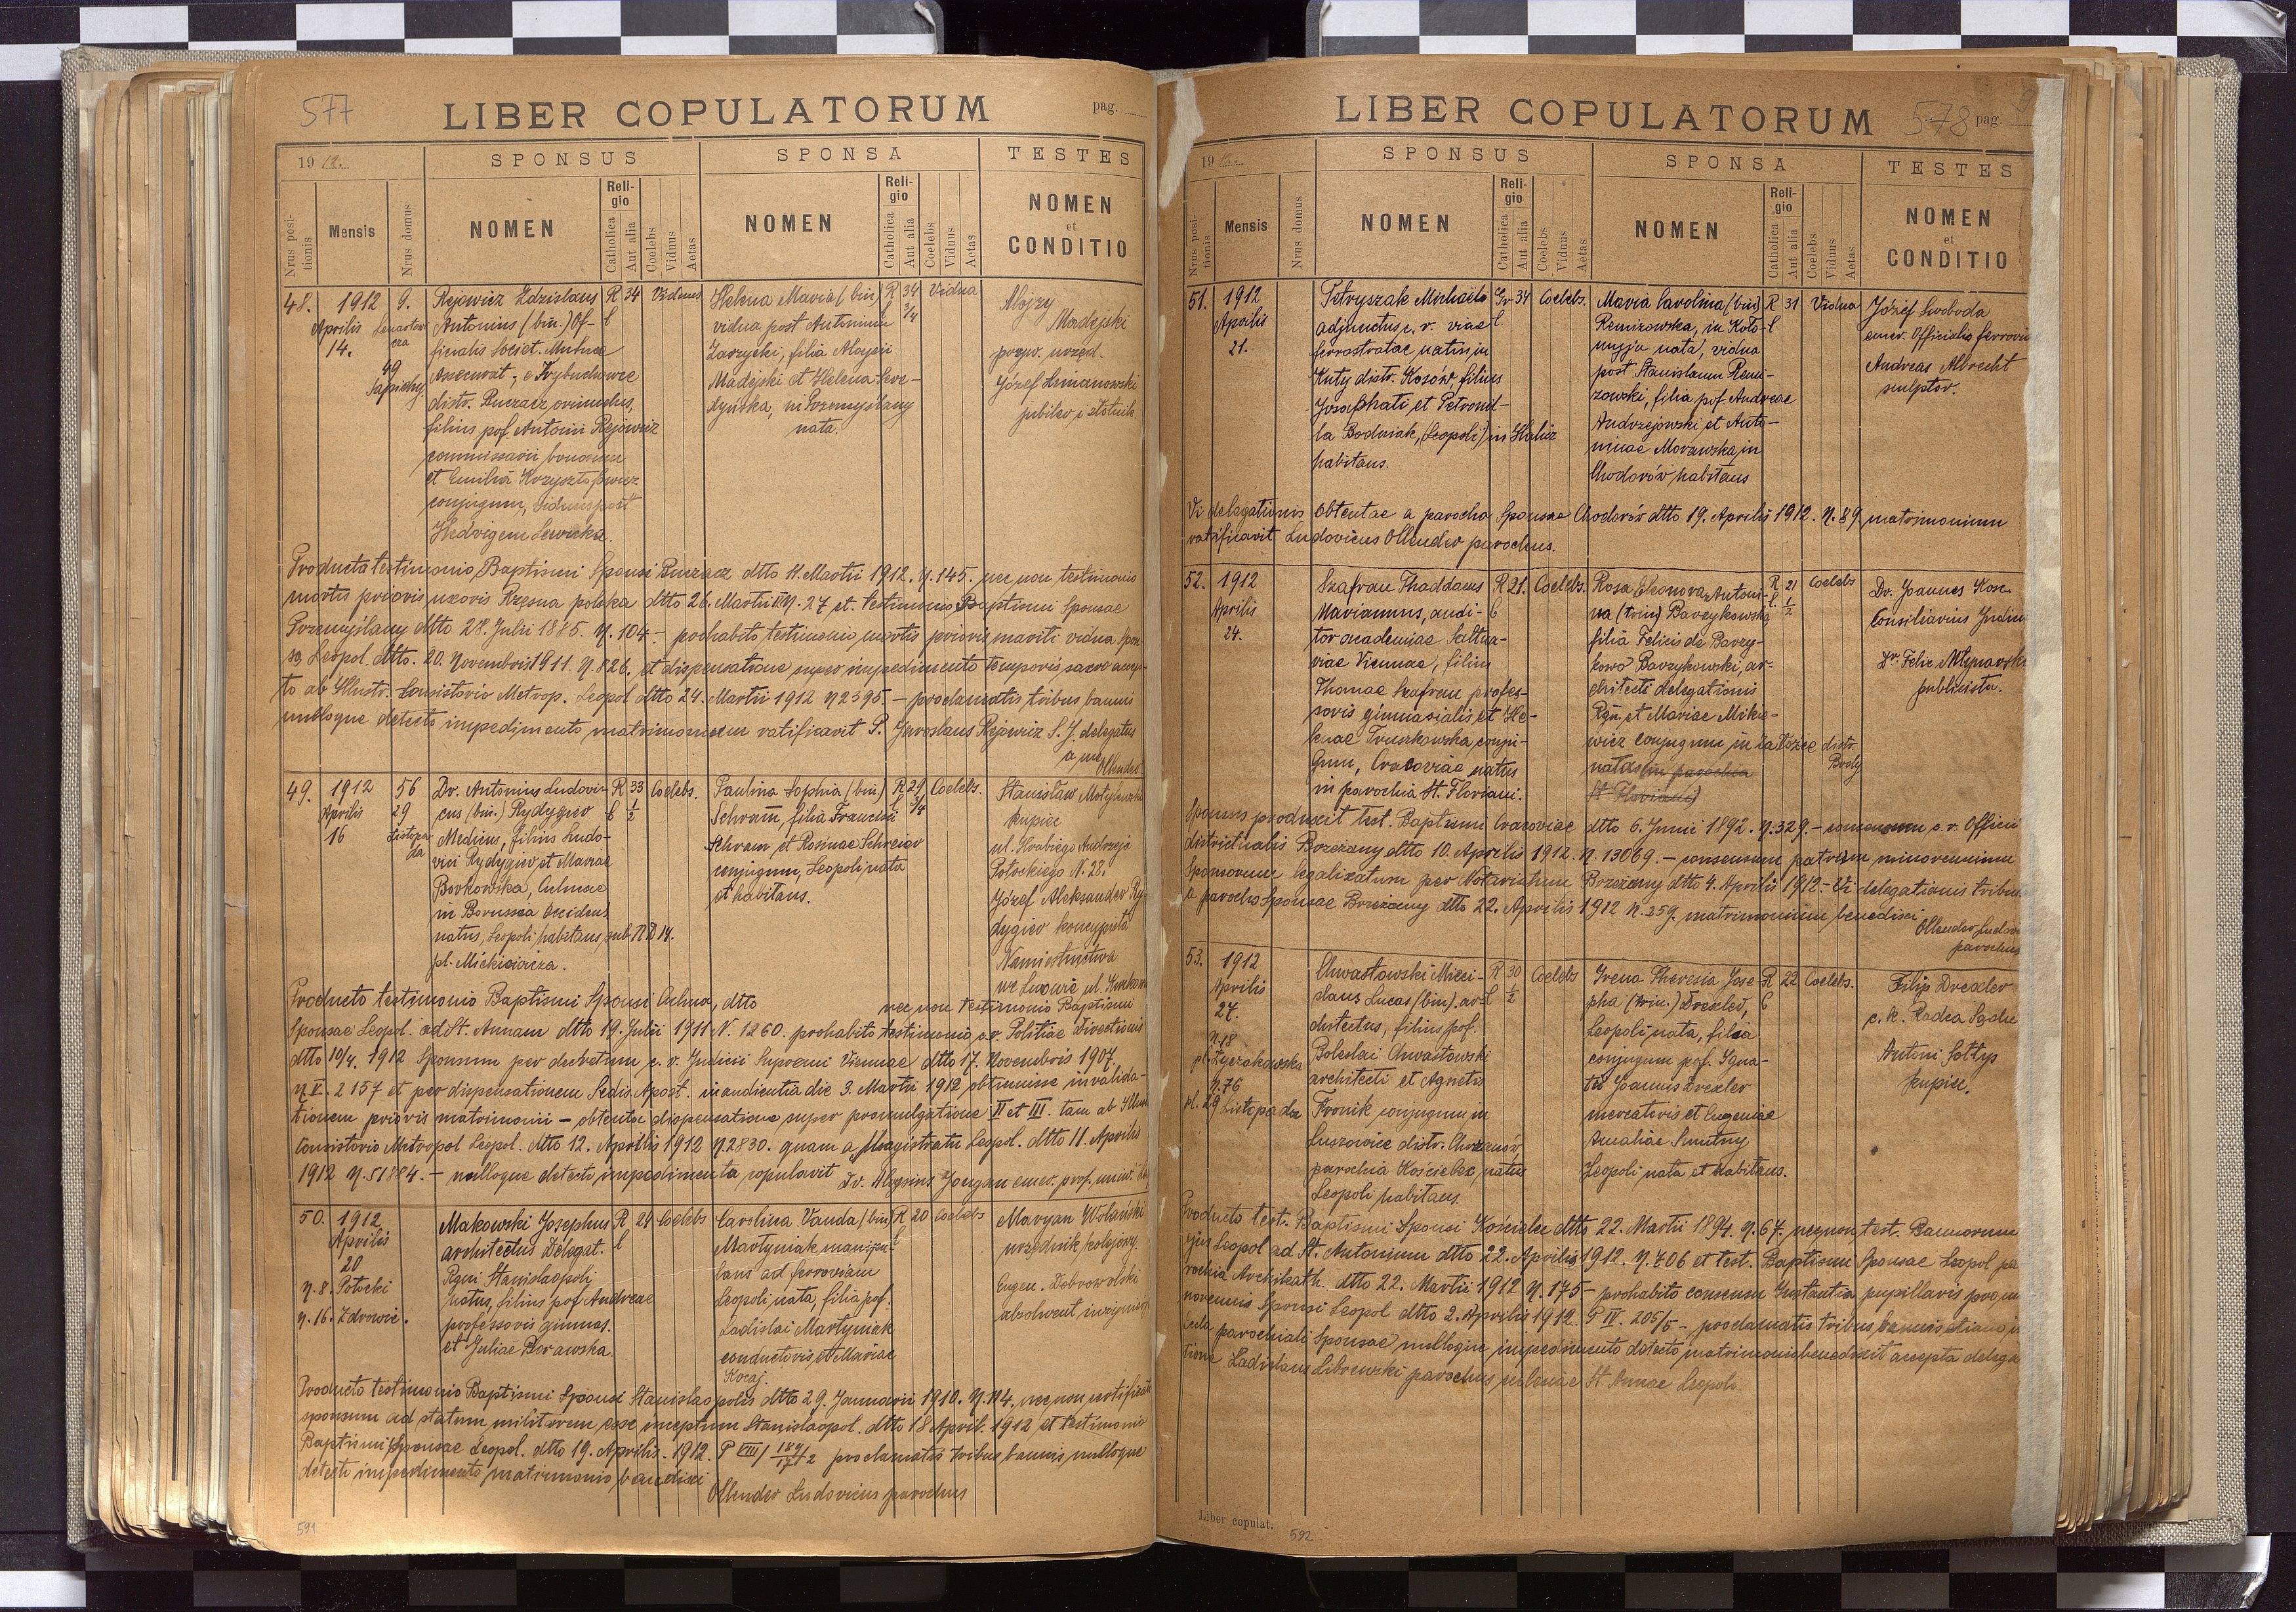 577
LIBER COPULATORUM
pag.
19 12.
SPONSUS
SPONSA
TESTES
Nrus positionis
Mensis
Nrus domus
NOMEN
Religio
Catholica
Aut alia
Coelebs
Viduus
Aetas
NOMEN
Religio
Catholica
Aut alia
Coelebs
Viduus
Aetas
NOMEN
et
CONDITIO
48.
1912
Aprilis
14.
9.
49
Sapiehy
Rejowicz Zdzislaus
Antonius (bin.) Of-
ficialis Societ. Mutuae
Assecurat., e Trybuchowce
distr. Buczacz oriundus,
filius pof. Antonii Rejowicz
commissarii
et Emilia Krzysztofowicz
conjugum, viduus post
Hedvigem Lewicka.
R 34 Viduus
Helena Maria (bin)
vidua post Antonium
Zarzycki, filia Aloysii
Madejski et Helena
in Przemyślany
nata.
R 34 3/4 Vidua
Alojzy
Madejski
pryw. urzęd.
Józef
Producto testimonio Baptismi Sponsi Buczacz dtto 11. Martii 1912. N. 145. nec non testimonio
mortis prioris uxoris Rzęsna polska dtto 26. Martii N. 27 et testimonio Baptismi Sponsae
Przemyślany dtto 28. Julii 1885. N. 104 – prohabito testimonio mortis prioris mariti
Leopol. dtto. 20. Novembris 1911. N. 826. et dispensatione super impedimento temporis sacro
ab Illustr. Consistorio Metrop. Leopol dtto 24. Martii 1912 N 2395. – proclamatis tribus bannis
nulloque detecto impedimento matrimonium ratificavit P. Jaroslaus Rejowicz S. J. delegatus
a me Ollender
49.
1912
Aprilis
16
56
29
Listopada
Dr. Antonius Ludovi-
cus (bin.) Rydygier
Medicus, filius Ludo-
vici Rydygier et Mariae
Borkowska, Culmae
in Borussia Occidens
natus, Leopoli habitans, sub N D 14.
pl. Mickiewicza.
R 33 1/2 Coelebs.
Paulina Sophia (bin.)
Schram, filia Francisci
Schram et Rosinae Schreier
conjugum, Leopoli nata
et habitans.
R 29 3/4 Coelebs.
Stanisław
kupiec
ul. Hrabiego Andrzeja
Potockiego N. 28.
Józef Aleksander Ry-
dygier koncypista
Namiestnictwa
we Lwowie ul.
Producto testimonio Baptismi Sponsi Culma, dtto nec non testimonio Baptismi
Sponsae Leopol. ad St. Annam dtto 19. Julii 1911 N. 1260. prohabito testimonio c. r. Politiae Directionis
dtto 10/4. 1912 Sponsum per decretum c. r. Judicii Supremi Viennae dtto 17. Novembris 1907.
N. II. 2157 et per dispensationem Sedis Apost. in audientia die 3. Martii 1912 obtinuisse invalida-
tionem prioris matrimonii – obtenta dispensatione super promulgatione II et III. tam ab Illustr
Consistorio Metropol Leopol. dtto 12. Aprilis 1912 N. 2830. quam a Magistratu Leopol. dtto 11. Aprilis
1912 N. 51884. – nulloque detecto impedimenta copulavit Dr. Aloysius Jougan emer. prof. univ.
50.
1912
Aprilis
20
N. 8. Potocki
N. 16. Zdrowie.
Makowski Josephus
architectus Delegat.
Rgni Stanislaopoli
natus, filius pof Andreae
professoris gimnas.
et Juliae Borawska.
R 24 Coelebs
Carolina Vanda (bin)
Martyniak manipu-
lans ad ferroviam
Leopoli nata, filia pof.
Ladislai Martyniak
conductoris et Mariae
Kocaj.
R 20 Coelebs
Maryan Wolański
urzędnik kolejowy.
Eugen. Dobrowolski
absolwent
Producto testimonio Baptismi Sponsi Stanislaopolis dtto 29. Januarii 1910. N. 114. nec non
sponsum ad statum militarem esse inceptum Stanislaopol. dtto 18 April. 1912, et testimonio
Baptismi Sponsae Leopol. dtto 19. Aprilis. 1912. proclamatis tribus bannis nulloque
detecto impedimento matrimonio benedixi
Ollender Ludovicus parochus
591
LIBER COPULATORUM
578
pag.
19 12.
SPONSUS
SPONSA
TESTES
Nrus positionis
Mensis
Nrus domus
NOMEN
Religio
Catholica
Aut alia
Coelebs
Viduus
Aetas
NOMEN
Religio
Catholica
Aut alia
Coelebs
Viduus
Aetas
NOMEN
et
CONDITIO
51.
1912
Aprilis
21.
Petryszak Michaelis
adjunctus c. r. viae
ferrostratae natus in
Kuty distr. Kosów, filius
Josaphati et Petronel-
la Bodniak, (Leopoli) in Halicz
habitans.
Gr 34 Coelebs.
Maria Carolina (bin)
Remizowska, in Koło-
myja nata, vidua
post Stanislaum Remi-
zowski, filia pof. Andreae
Andrzejowski et Anto-
ninae Morawska, in
Chodorów habitans
R 31 Vidua
Józef Swoboda
emer. Officialis ferrovia
Andreas Albrecht
sculptor.
Vi delegationis obtentae a parocho Sponsae Chodorów dtto 19. Aprilis 1912. N. 89. matrimonium
ratificavit Ludovicus Ollender parochus.
52.
1912
Aprilis
24.
Szafran Thaddaeus
Marianus, audi-
tor academiae Saltua-
riae Viennae, filius
Thomae Szafran profes-
soris gimnasialis et He-
lenae Truszkowska, conju-
gum, Cracoviae natus
in parochia St. Floriani.
R 21. Coelebs.
Rosa Eleonora Antoni-
na (trin) Barzykowska
filia Felicis de Barzy-
kowo Barzykowski, ar-
chitecti delegationis
Rgn. et Mariae Mike-
wicz conjugum in distr
Brody
natas in parochia
St Floriani)
R 21 1/2 Coelebs
Dr. Joannes Kose.
Consiliarius
Dr. Felix Młynarski
publicista.
Sponsus produxit test. Baptismi Cracoviae dtto 6. Junii 1892. N. 329. – consensum c. r. Officii
districtualis Brzeżany dtto 10. Aprilis 1912 N. 13069. – consensum patrum minorennium
Sponsorum legalizatum per Notariatum Brzeżany dtto 4. Aprilis 1912. – Vi delegationis
a parocho Sponsae Brzeżany dtto 22. Aprilis 1912 N. 259. matrimonium benedixi
Ollender
parochus
53.
1912
Aprilis
27.
N. 18
pl. Kyrzakowska
N. 76
pl. 29 Listopada
Chwastowski Mieci-
slaus Lucas (bin), ar-
chitectus, filius pof.
Boleslai Chwastowski
architecti et Agnetis
Fronik conjugum, in
Luszowice distr. Chrzanów
parochia Kościelec, natus
Leopoli habitans.
R 30 1/2 Coelebs
Irena Theresia Jose-
pha (trin.) Drexler,
Leopoli nata, filia
conjugum pof. Igna-
tii Joannis Drexler
mercatoris et Eugeniae
Amaliae Smutny
Leopoli nata et habitans.
R 22 Coelebs.
Filip Drexler
c. k. Radca Sądu
Antoni Sołtys
kupiec.
Producto test. Baptismi Sponsi Kościelec dtto 22. Martii 1894. N. 67. necnon test. Bannorum
ejus Leopol ad St. Antonium dtto 22. Aprilis 1912. N. 706 et test. Baptismi Sponsae Leopol
Archikath. dtto 22. Martii 1912 N. 175 – prohabito consensu Instantia pupillaris pro
norennis Sponsi Leopol dtto 2. Aprilis 1912. P IV. 205/5 – proclamatis tribus bannis
parochiali Sponsae nulloque impedimento detecto matrimonio benedixit accepta delega
tione Ladislaus Librewski parochus ecclesiae St Annae Leopoli.
Liber copulat.
592